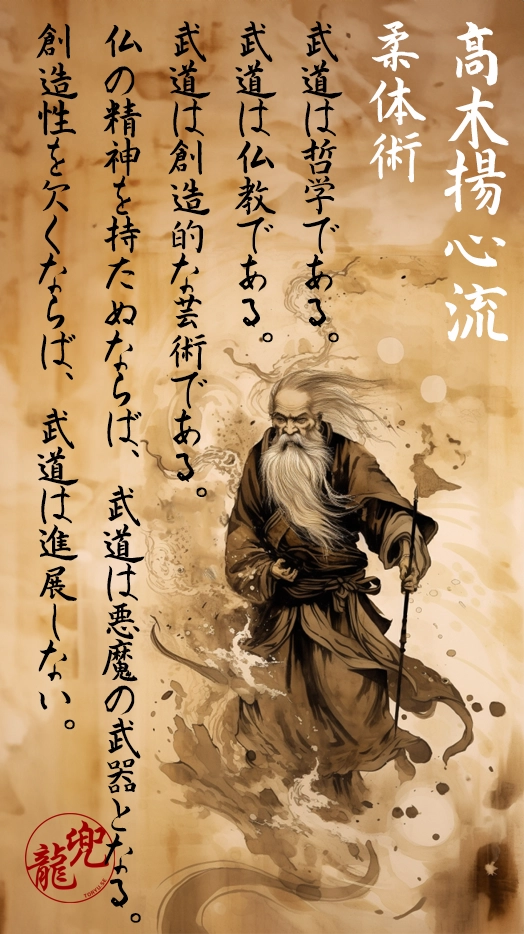 高木揚心流
柔体術
武道は哲学である。
武道は仏教である。
武道は創造的な芸術である。
仏の精神を持たぬならば、武道は悪魔の武器となる。
創造性を欠くならば、武道は進展しない。
兜龍